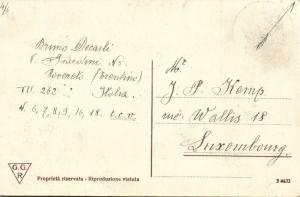 4/6
Bruno Decarli
V. Tracolini No.
Rovereto (Trentino)
TN. 262 Italia
N. 6, 7, 8, 9, 16, 18. t.c.v.
M.
J. P. Kemp
rue Wallis 18
Luxembourg.
G. G.
R
Proprietà riservata - Riproduzione vietata